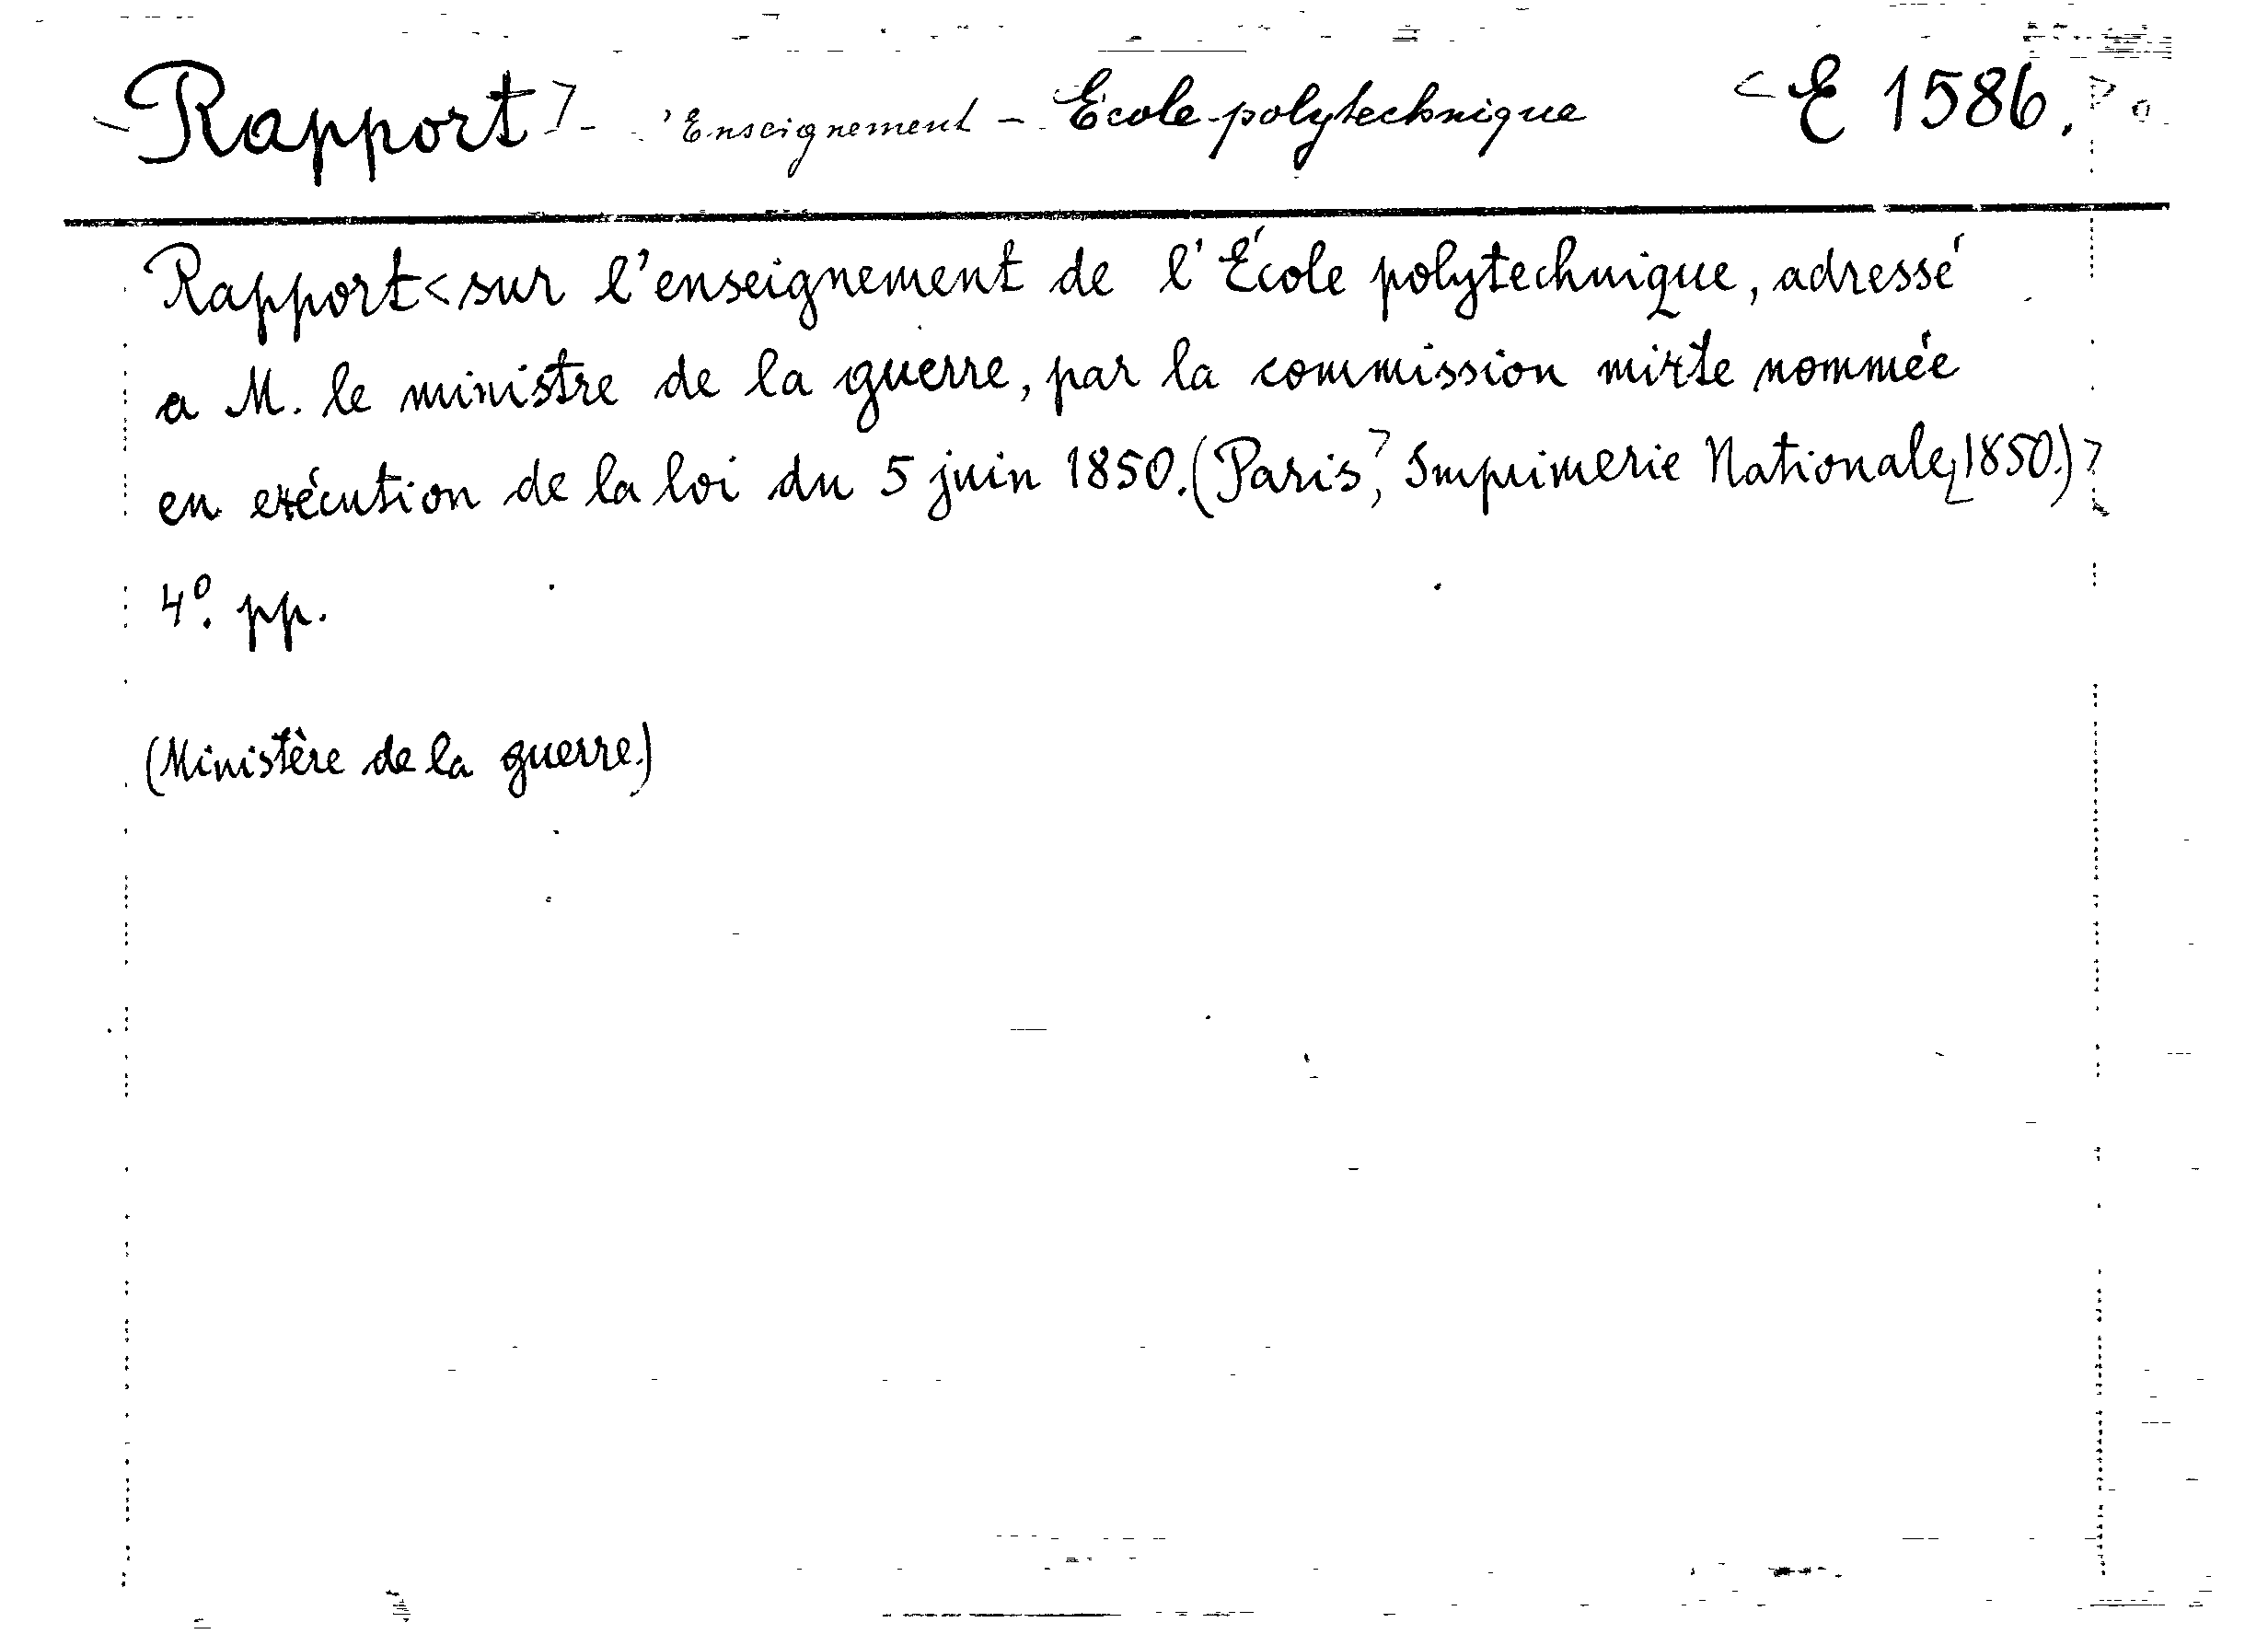 Rapport - Enseignement - École polytechnique E 1586.
Rapport < sur l'enseignement de l'École polytechnique, adressé
a M. le ministre de la guerre, par la commission mixte nommée
en exécution de la loi du 5 juin 1850. (Paris, Imprimerie Nationale, 1850.)
4º. pp.
(Ministère de la guerre.)